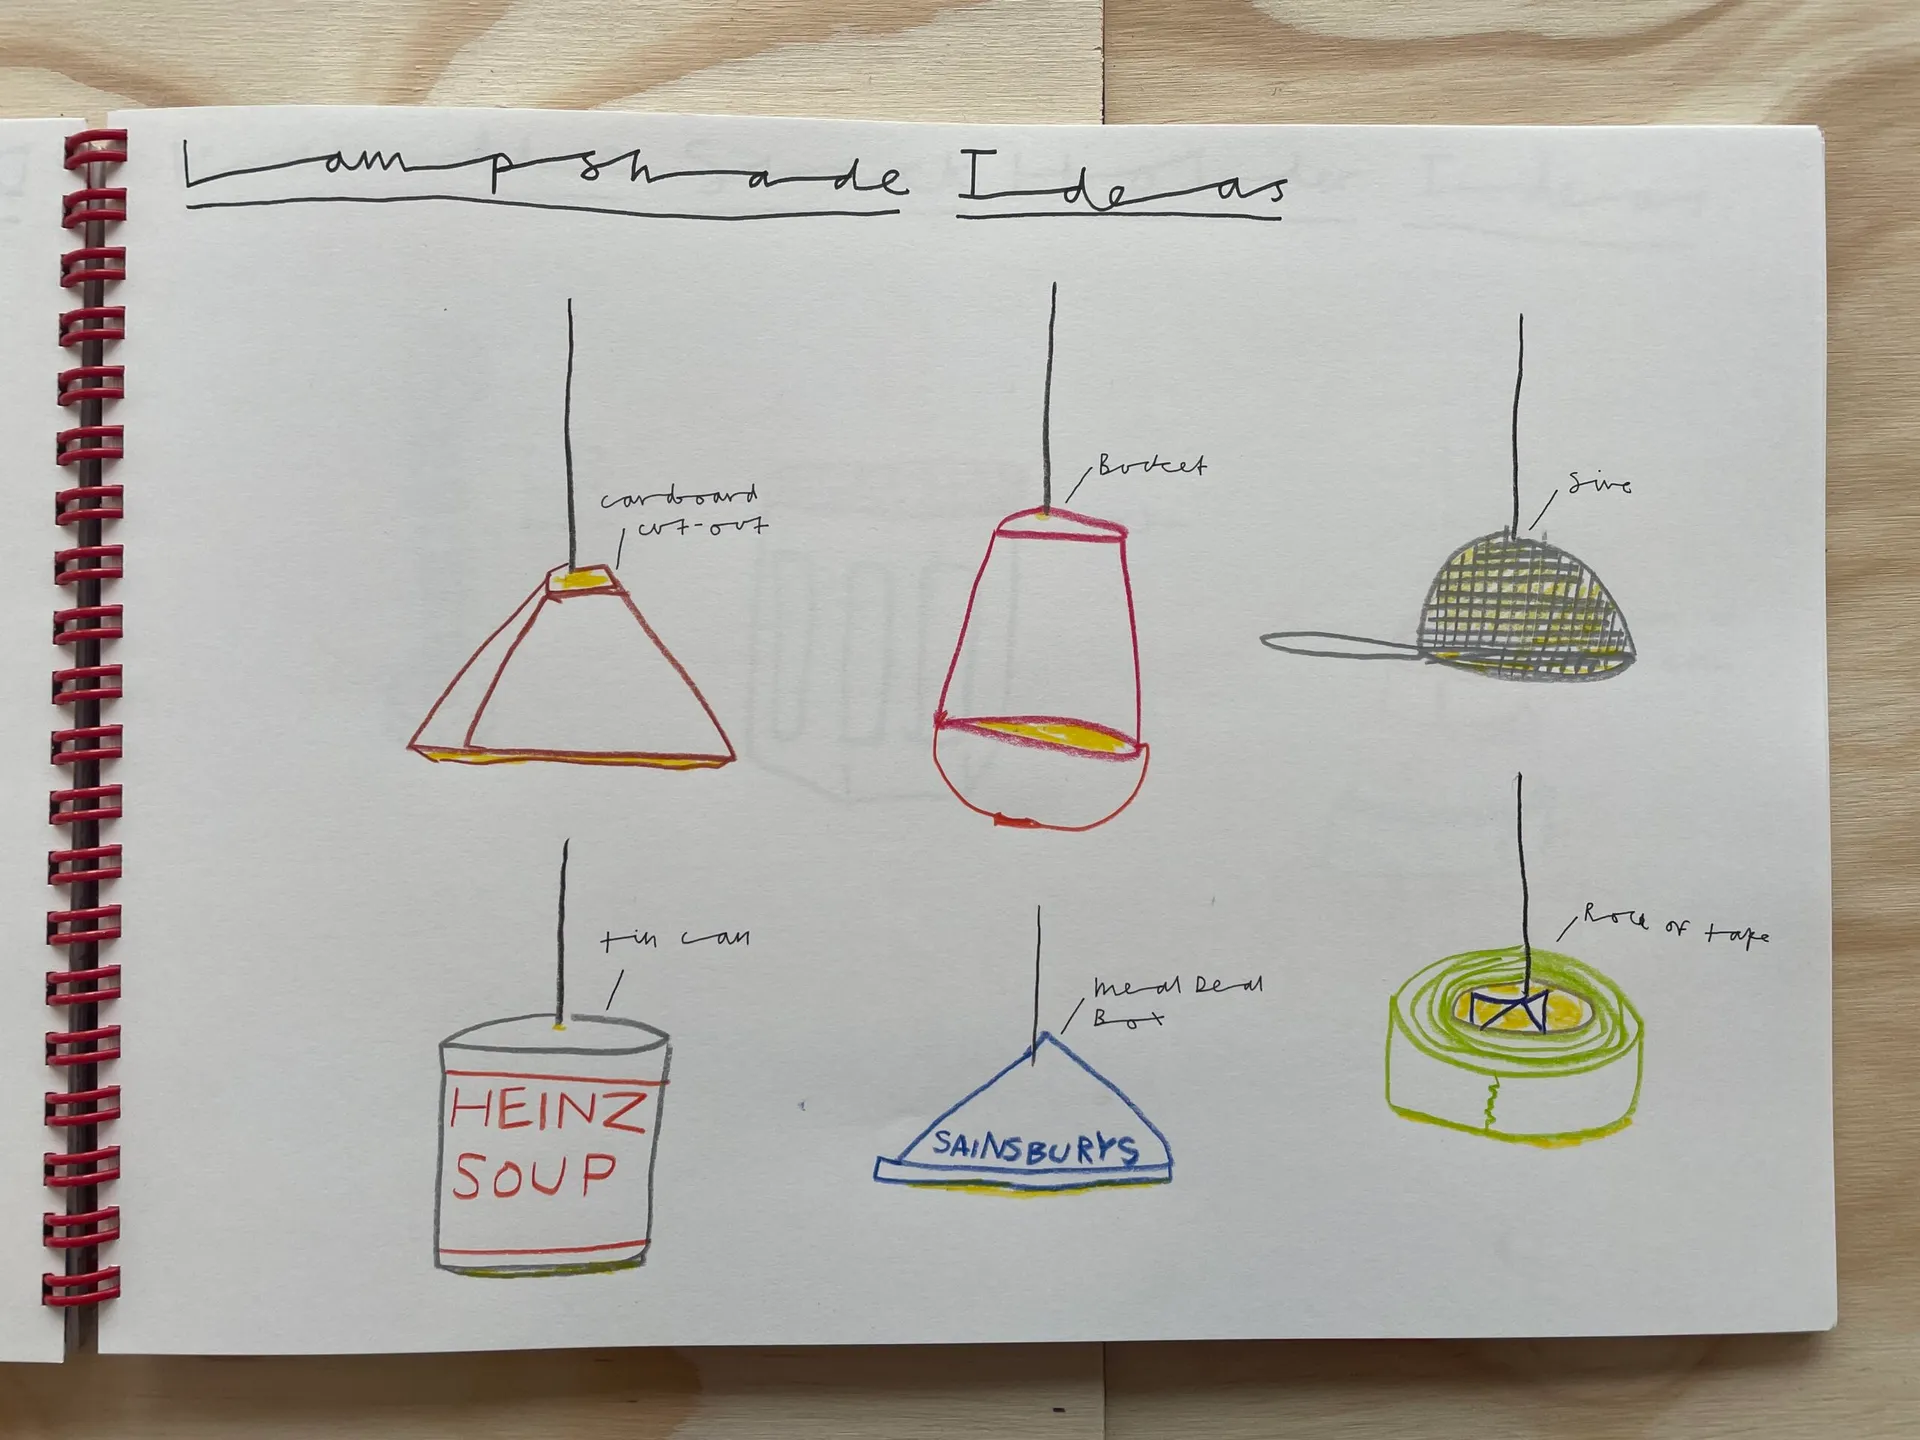 Lampshade Ideas
cardboard
cut-out
Bucket
Sive
tin can
HEINZ
SOUP
Meal Deal
Box
SAINSBURYS
Role of tape